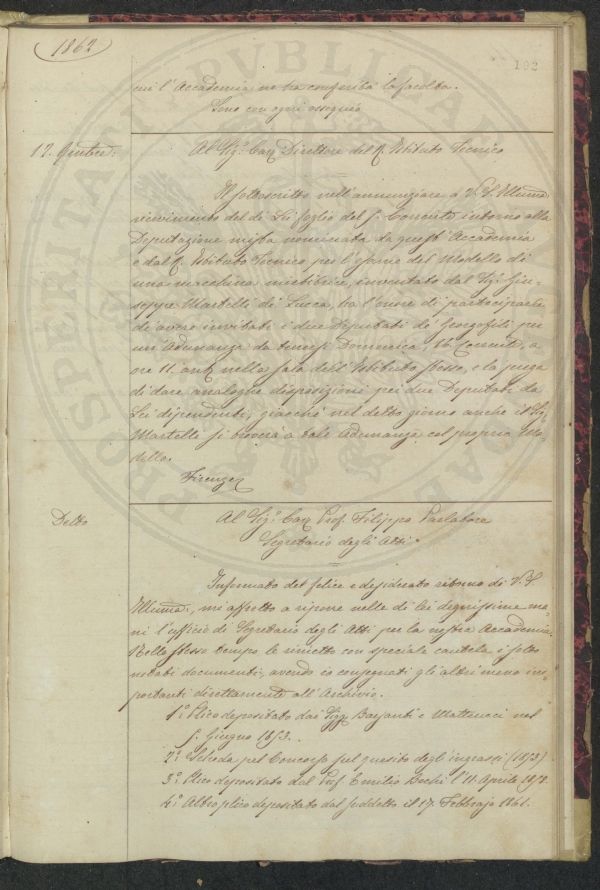 1862
192
cui l'Accademia ne ha conferita la facoltà.
Sono con ogni ossequio
12. 9mbre:
Al Sig.r Cav. Direttore del R. Istituto Tecnico
Il sottoscritto nell'annunziare a V.S. Illuma
ricevimento del di Lei foglio del f. Corrente intorno alla
Deputazione mista nominata da quest'Accademia
e dal R. Istituto Tecnico per l'esame del Modello di
una macchina inventato dal Sig. Giu-
seppe Martelli di Lucca, ha l'onore di parteciparle
di avere invitati i due Deputati de' Georgofili per
un'Adunanza da tenersi Domenica, 16 Corrente, a
ore 11. ant. nella sala dell'Istituto stesso, e la prega
di dare analoghe disposizioni pei due Deputati da
Lei dipendenti, giacchè nel detto giorno anche il Sig.
Martelli si troverà a tale Adunanza col proprio Mo-
dello.
Firenze
Detto
Al Sig.r Cav. Prof. Filippo Parlatore
Segretario degli Atti.
Informato del felice e desiderato ritorno di V.S.
Illuma:, mi affretto a riporre nelle di lei degnissime ma-
ni l'ufficio di Segretario degli Atti per la nostra Accademia.
Nello stesso tempo le rimetto con speciale cautela i sotto
notati documenti, avendo io consegnati gli altri meno im-
portanti direttamente all'Archivio.
1.o Plico depositato dai Sigg. Barsanti e Matteucci nel
5. Giugno 1853.
2.o Scheda pel Concorso sul quesito degli ingrassi (1853)
3.o Plico depositato dal Prof. Emilio Bechi l'11 Aprile
4.o Altro plico depositato dal suddetto il 17. Febbrajo 1861.
PROSPERITATI PUBLICAE AUGENDAE